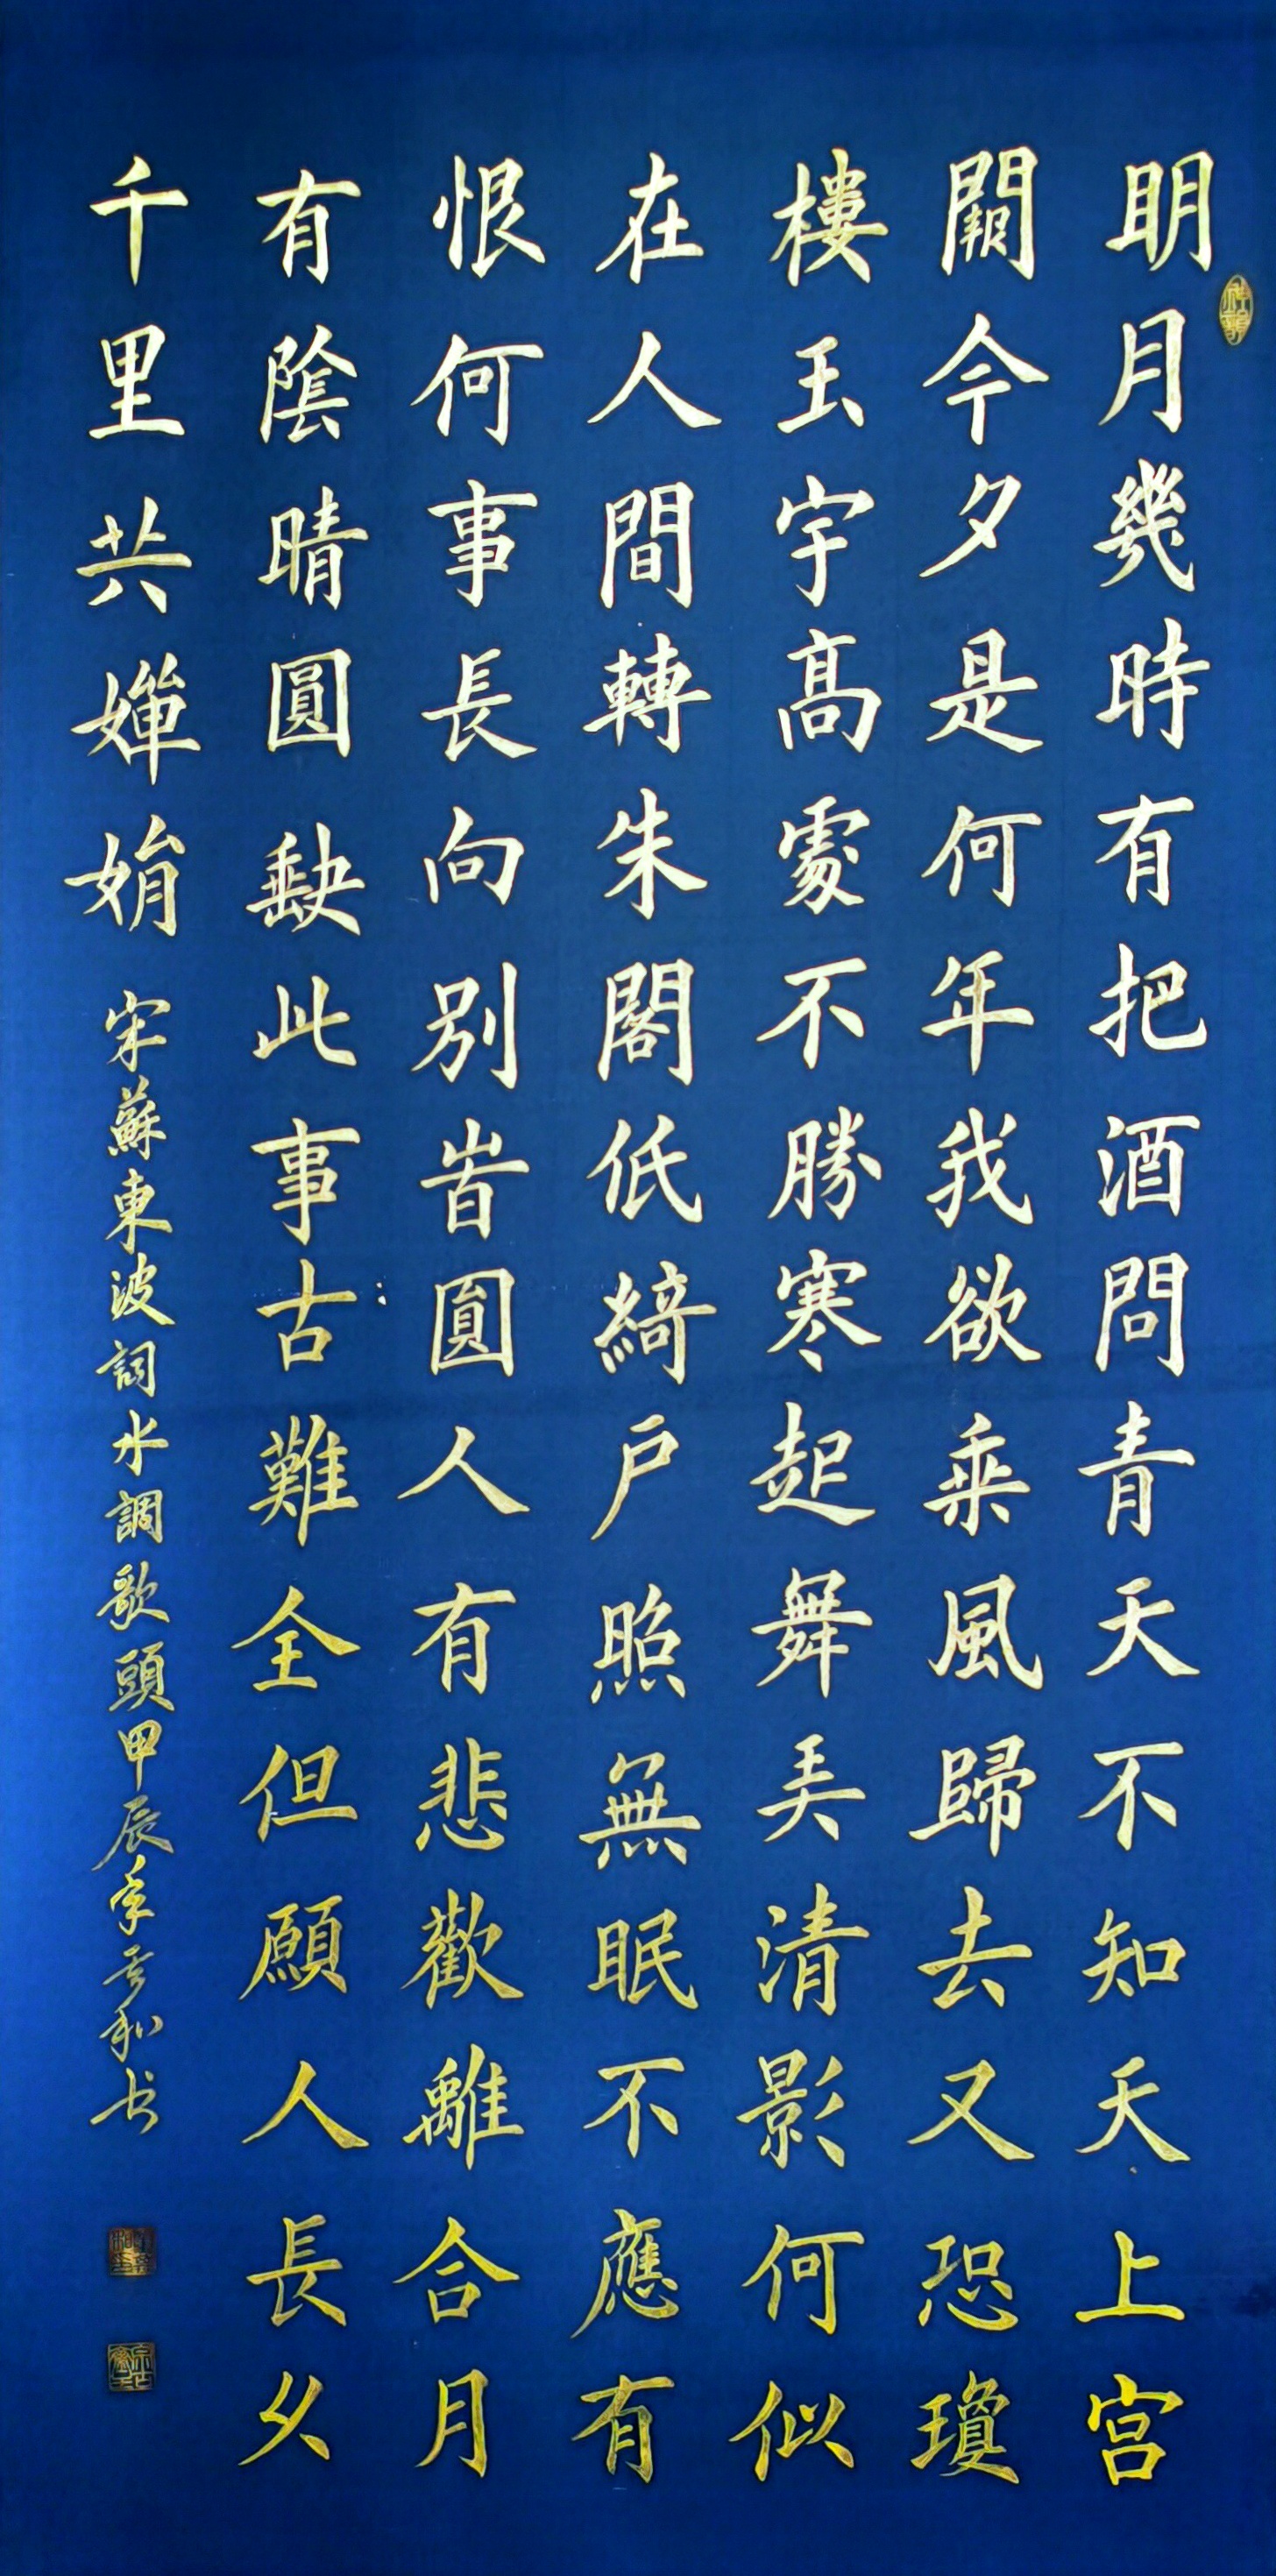 明月幾時有把酒問青天不知天上宫
闕今夕是何年我欲乘風歸去又恐瓊
樓玉宇高處不勝寒起舞弄清影何似
在人間轉朱閣低綺户照無眠不應有
恨何事長向别峕圓人有悲歡離合月
有陰晴圓缺此事古難全但願人長久
千里共嬋娟 宋蘇東坡詞水調歌頭甲辰年 和书